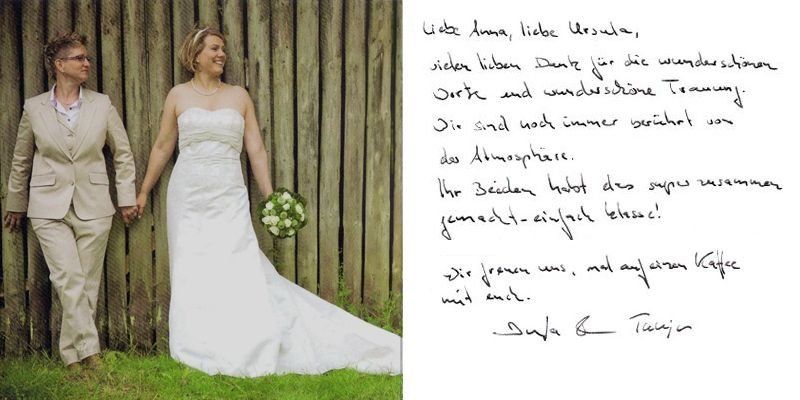 Liebe Anna, liebe Ursula,
vielen lieben Dank für die wunderschönen
Worte und wunderschöne Trauung.
Wir sind noch immer berührt von
der Atmosphäre.
Ihr Beiden habt das super zusammen
gemacht - einfach klasse!
Wir freuen uns, mal auf einen Kaffee
mit euch.
Tanja